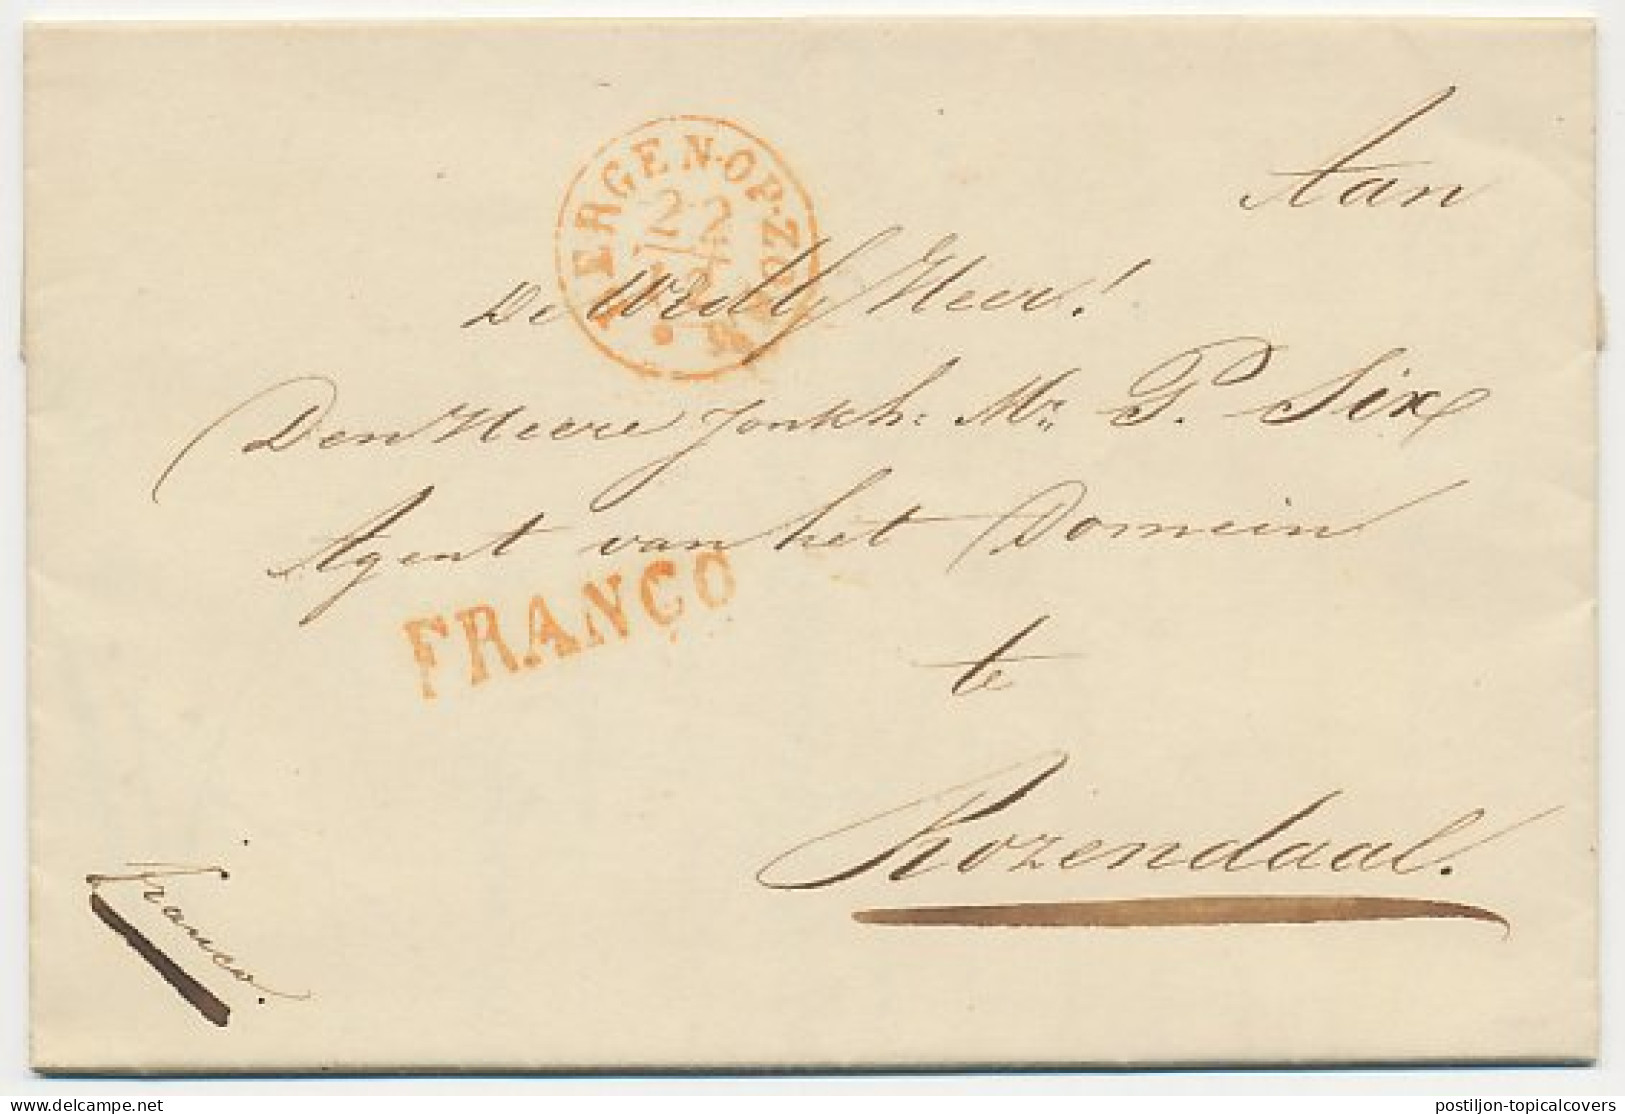 Aan
BERGEN-OP-ZOOM
22
12
De Heer!
Den Heere Jonkh: Mr. P. Six
Agent van het Domein
FRANCO
te
Rozendaal.
franco.
www.delcampe.net
postiljon-topicalcovers